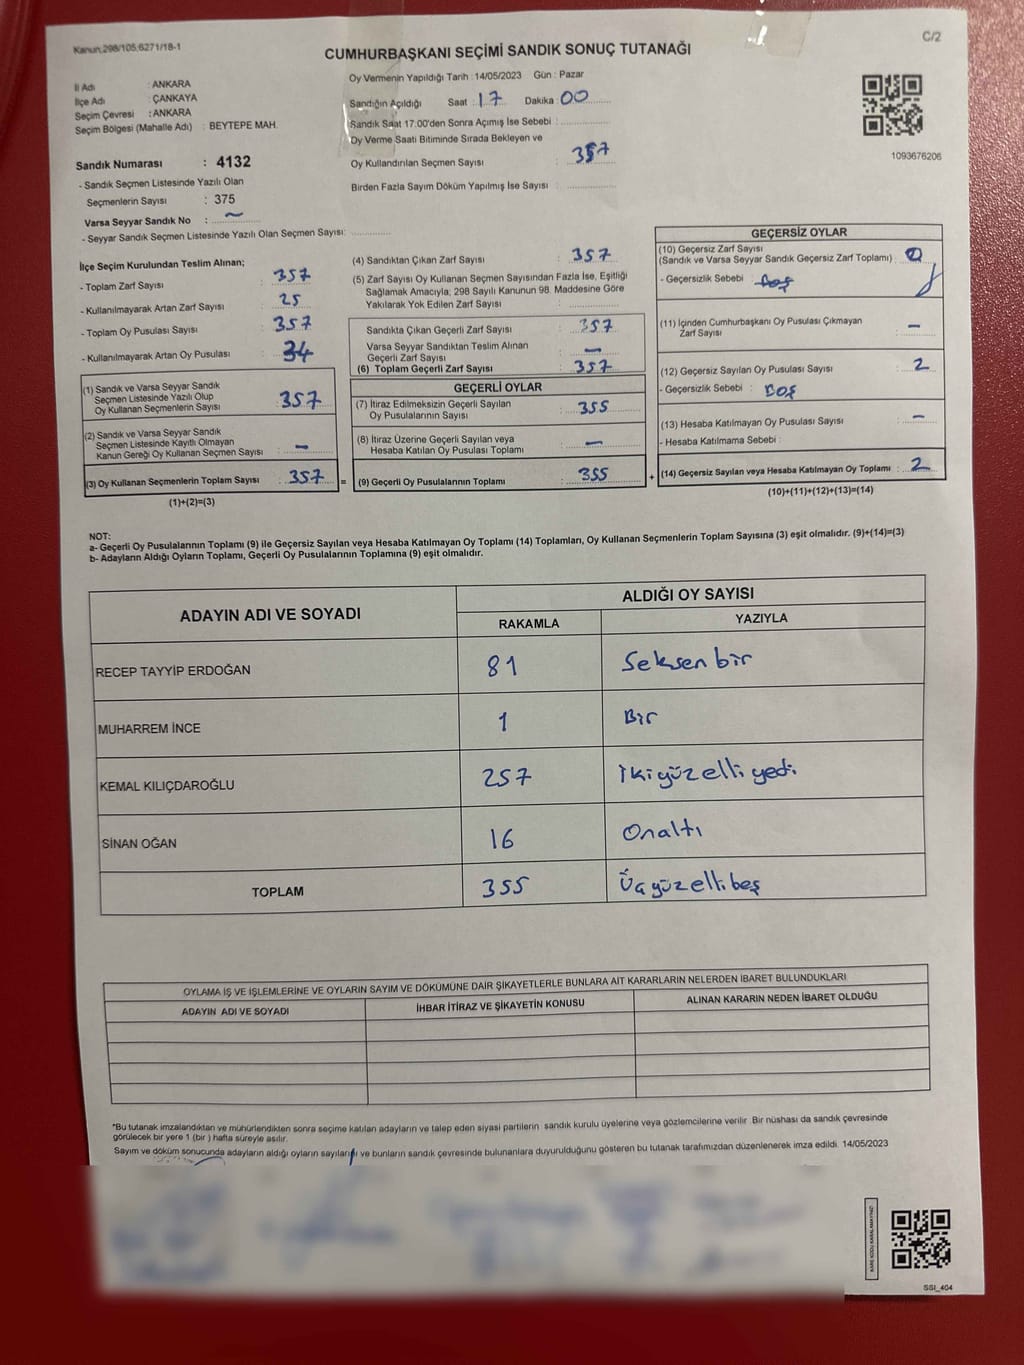 Kanun:298/105;6271/18-1
C/2
CUMHURBAŞKANI SEÇİMİ SANDIK SONUÇ TUTANAĞI
İl Adı : ANKARA
İlçe Adı : ÇANKAYA
Seçim Çevresi : ANKARA
Seçim Bölgesi (Mahalle Adı) : BEYTEPE MAH.
Sandık Numarası : 4132
- Sandık Seçmen Listesinde Yazılı Olan
Seçmenlerin Sayısı : 375
Varsa Seyyar Sandık No : ~
- Seyyar Sandık Seçmen Listesinde Yazılı Olan Seçmen Sayısı:
Oy Vermenin Yapıldığı Tarih : 14/05/2023 Gün : Pazar
Sandığın Açıldığı Saat : 17 Dakika : 00
Sandık Saat 17:00'den Sonra Açımış İse Sebebi :
Oy Verme Saati Bitiminde Sırada Bekleyen ve
Oy Kullandırılan Seçmen Sayısı : 357
Birden Fazla Sayım Döküm Yapılmış İse Sayısı :
1093676206
İlçe Seçim Kurulundan Teslim Alınan;
- Toplam Zarf Sayısı : 357
- Kullanılmayarak Artan Zarf Sayısı : 25
- Toplam Oy Pusulası Sayısı : 357
- Kullanılmayarak Artan Oy Pusulası : 34
(1) Sandık ve Varsa Seyyar Sandık
Seçmen Listesinde Yazılı Olup
Oy Kullanan Seçmenlerin Sayısı : 357
(2) Sandık ve Varsa Seyyar Sandık
Seçmen Listesinde Kayıtlı Olmayan
Kanun Gereği Oy Kullanan Seçmen Sayısı : -
(3) Oy Kullanan Seçmenlerin Toplam Sayısı : 357 =
(1)+(2)=(3)
(4) Sandıktan Çıkan Zarf Sayısı : 357
(5) Zarf Sayısı Oy Kullanan Seçmen Sayısından Fazla İse, Eşitliği
Sağlamak Amacıyla; 298 Sayılı Kanunun 98. Maddesine Göre
Yakılarak Yok Edilen Zarf Sayısı :
Sandıkta Çıkan Geçerli Zarf Sayısı : 357
Varsa Seyyar Sandıktan Teslim Alınan
Geçerli Zarf Sayısı : -
(6) Toplam Geçerli Zarf Sayısı : 357
GEÇERLİ OYLAR
(7) İtiraz Edilmeksizin Geçerli Sayılan
Oy Pusulalarının Sayısı : 355
(8) İtiraz Üzerine Geçerli Sayılan veya
Hesaba Katılan Oy Pusulası Toplamı : -
(9) Geçerli Oy Pusulalarının Toplamı : 355 +
GEÇERSİZ OYLAR
(10) Geçersiz Zarf Sayısı
(Sandık ve Varsa Seyyar Sandık Geçersiz Zarf Toplamı) :
- Geçersizlik Sebebi : Boş
(11) İçinden Cumhurbaşkanı Oy Pusulası Çıkmayan
Zarf Sayısı : -
(12) Geçersiz Sayılan Oy Pusulası Sayısı : 2
- Geçersizlik Sebebi : BOŞ
(13) Hesaba Katılmayan Oy Pusulası Sayısı : -
- Hesaba Katılmama Sebebi :
(14) Geçersiz Sayılan veya Hesaba Katılmayan Oy Toplamı : 2
(10)+(11)+(12)+(13)=(14)
NOT:
a- Geçerli Oy Pusulalarının Toplamı (9) ile Geçersiz Sayılan veya Hesaba Katılmayan Oy Toplamı (14) Toplamları, Oy Kullanan Seçmenlerin Toplam Sayısına (3) eşit olmalıdır. (9)+(14)=(3)
b- Adayların Aldığı Oyların Toplamı, Geçerli Oy Pusulalarının Toplamına (9) eşit olmalıdır.
ADAYIN ADI VE SOYADI
ALDIĞI OY SAYISI
RAKAMLA YAZIYLA
RECEP TAYYİP ERDOĞAN 81 Seksen bir
MUHARREM İNCE 1 Bir
KEMAL KILIÇDAROĞLU 257 İki yüz elli yedi
SİNAN OĞAN 16 Onaltı
TOPLAM 355 Üç yüz elli beş
OYLAMA İŞ VE İŞLEMLERİNE VE OYLARIN SAYIM VE DÖKÜMÜNE DAİR ŞİKAYETLERLE BUNLARA AİT KARARLARIN NELERDEN İBARET BULUNDUKLARI
ADAYIN ADI VE SOYADI İHBAR İTİRAZ VE ŞİKAYETİN KONUSU ALINAN KARARIN NEDEN İBARET OLDUĞU
*Bu tutanak imzalandıktan ve mühürlendikten sonra seçime katılan adayların ve talep eden siyasi partilerin sandık kurulu üyelerine veya gözlemcilerine verilir. Bir nüshası da sandık çevresinde
görülecek bir yere 1 (bir ) hafta süreyle asılır.
Sayım ve döküm sonucunda adayların aldığı oyların sayıları ve bunların sandık çevresinde bulunanlara duyurulduğunu gösteren bu tutanak tarafımızdan düzenlenerek imza edildi. 14/05/2023
KARE KODU KARALAMAYINIZ!
SSI_404